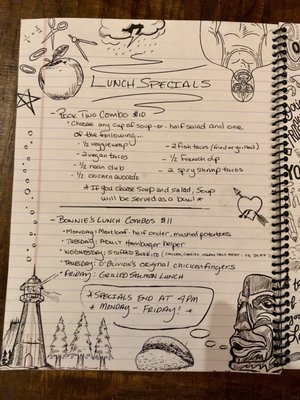 LUNCH SPECIALS
- PICK TWO COMBO $10
• Choose any cup of soup or half salad and one of the following...
- ½ veggie wrap
- 2 fish tacos (fried or grilled)
- 2 vegan tacos
- ½ french dip
- ½ nean club
- 2 spicy shrimp tacos
- ½ chicken avocado
* If you choose soup and salad, Soup
will be served as a bowl *
- BONNIE'S LUNCH COMBOS $11
• MONDAY: Meatloaf - half order, mashed potatoes
• TUESDAY: ADULT Hamburger helper
• WEDNESDAY: STUFFED BURRITO (
• THURSDAY: O'Blivion's original chicken fingers
• FRIDAY: GRILLED SALMON LUNCH
* SPECIALS END AT 4PM
* MONDAY - FRIDAY! *